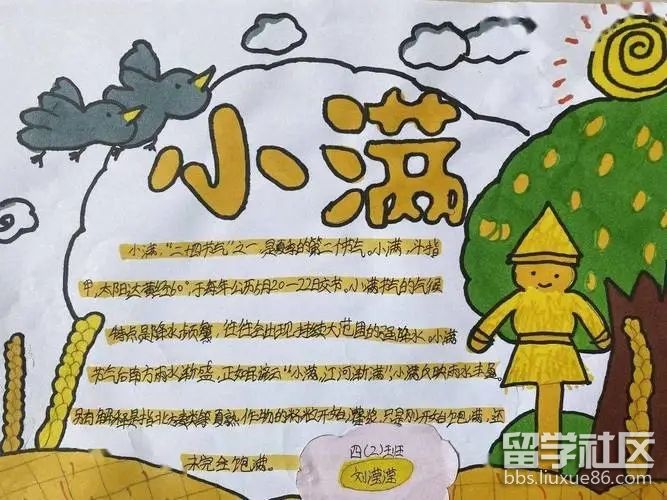 小满
小满,“二十四节气”之一,是夏季的第二个节气。小满,斗指
甲,太阳达黄经60°,于每年公历5月20—22日交节。小满节气的气候
特点是降水频繁,往往会出现持续大范围的强降水。小满
节气后南方雨水渐盛,正如民谚云“小满小满,江河渐满”,小满反映雨水丰盈。
另有解释是指北方麦类等夏熟作物的籽粒开始灌浆,只是刚开始饱满,还
未完全饱满。
四(2)班
刘滢滢
留学社区
bbs.liuxue86.com